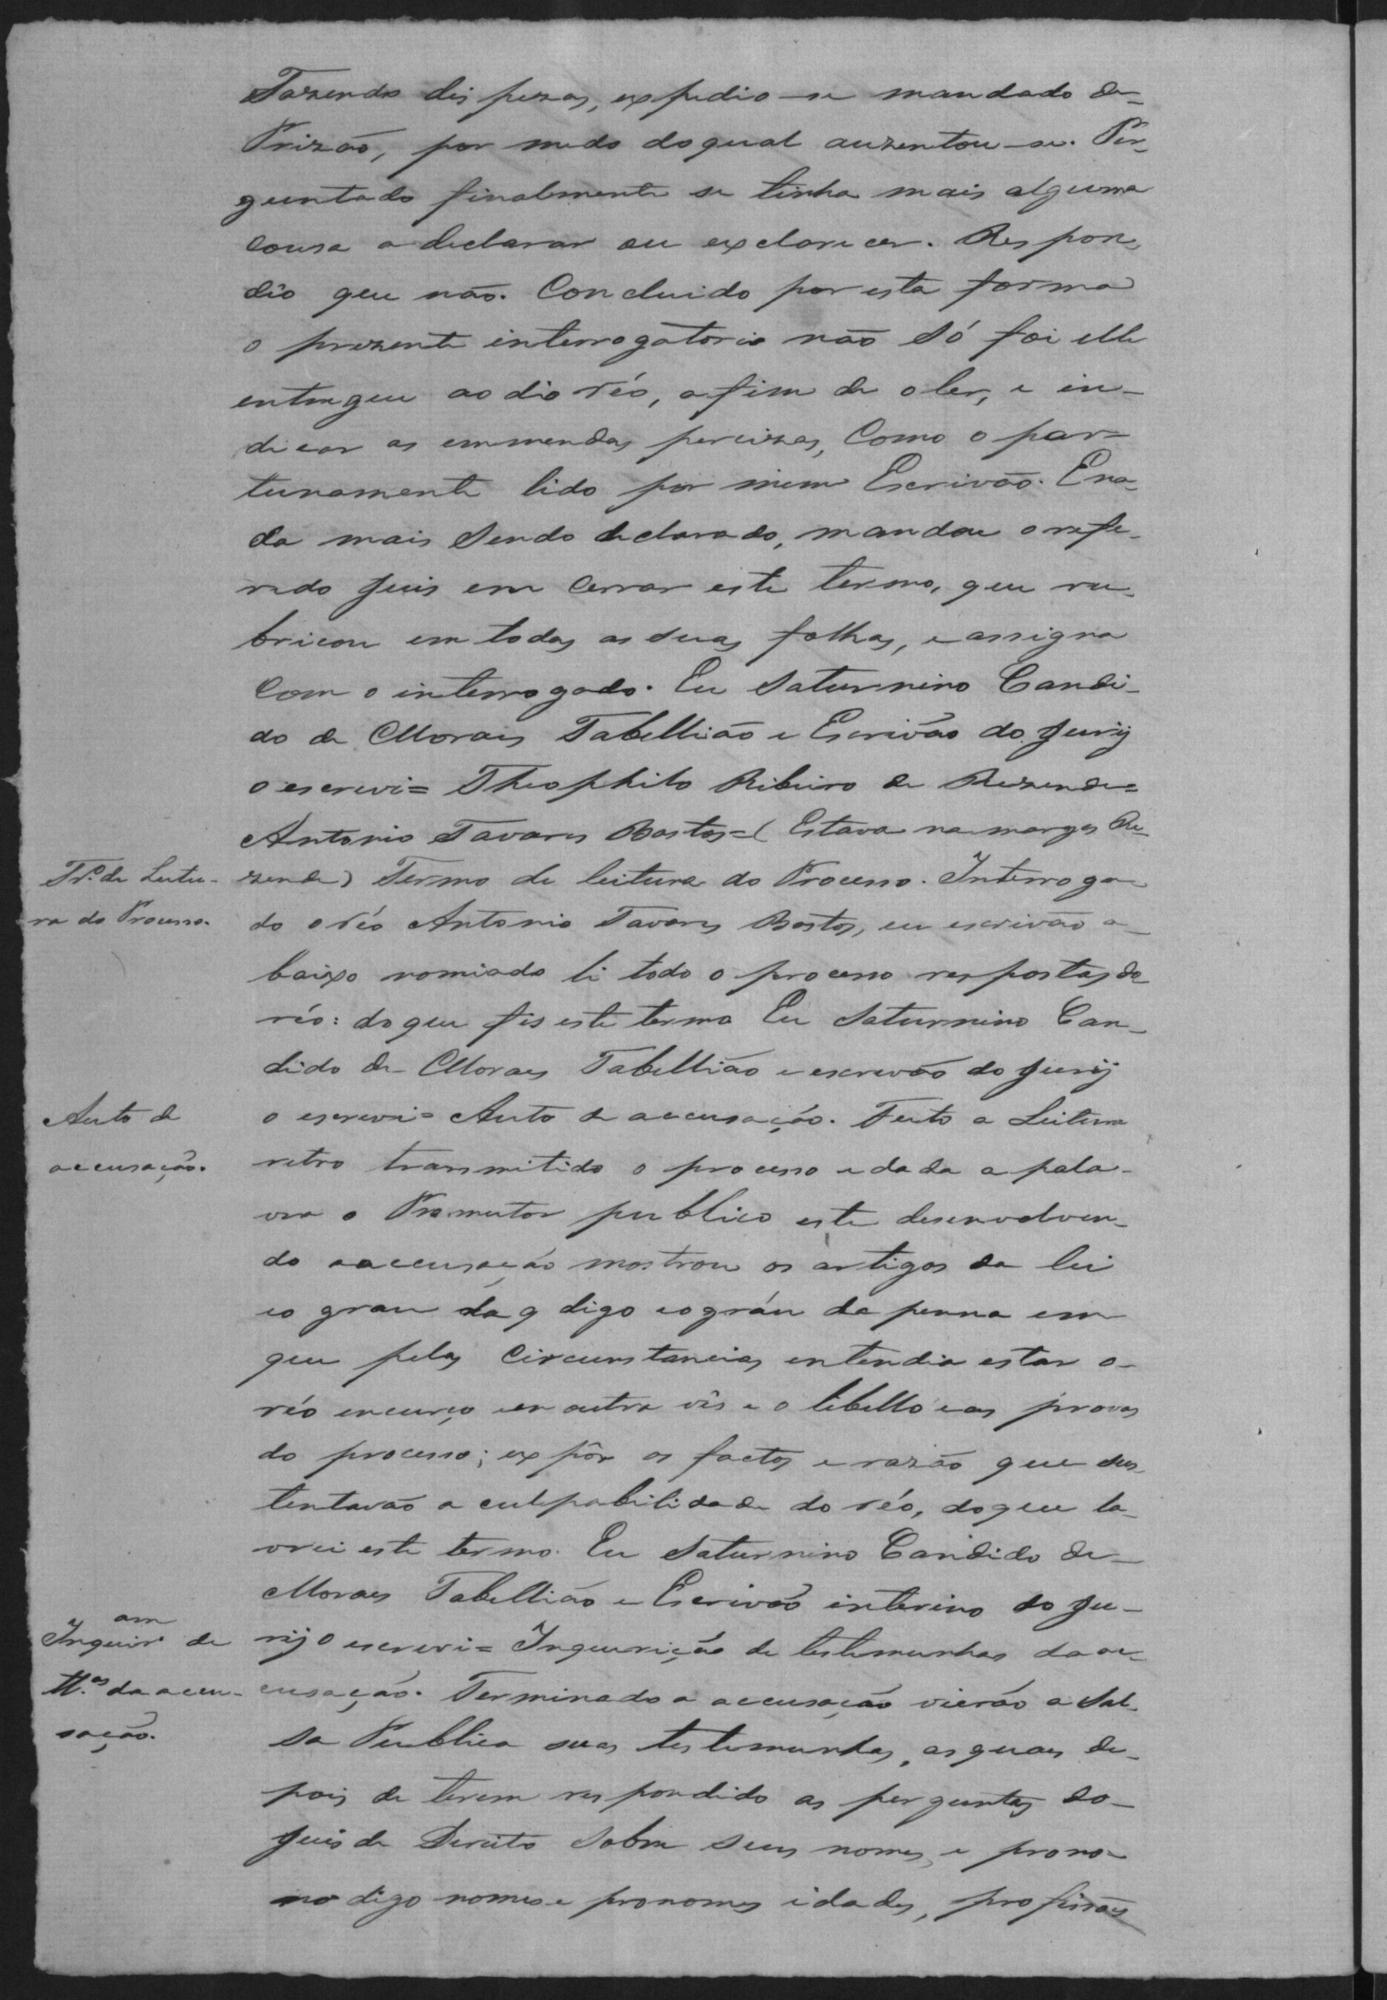 Fazendo dispezas, expedio-se mandado de
Prizão, por medo doqual auzentou-se. Per-
guntado finalmente se tinha mais alguma
cousa a declarar ou exclarecer. Respon-
dio que não. Concluido por esta forma
o prezente interrogatorio não só foi elle
entregue ao dio réo, afim de o ler, e in-
dicar as emmendas percizas, Como opor-
tunamente lido por mim Escrivão. Ena-
da mais sendo declarado, mandou o refe-
rido Juis em cerrar este termo, que ru-
bricou em todas as suas folhas, e assigna
Com o interrogado. Eu Saturnino Candi-
do de Moraes Tabellião e Escrivão do Jury
o escrevi = Theophilo Ribeiro de Rezende =
Antonio Tavares Bastos = ( Estava na marges Re-
Tr.º de Leitu-
ra do Processo.
zende) Termo de leitura do Processo. Interroga-
do o réo Antonio Tavares Bastos, eu escrivão a-
baixo nomiado li todo o processo respostas do
réo: doque fis este termo Eu Saturnino Can-
dido de Moraes Tabellião e escrevão do Jury
Auto de
accusação.
o escrevi = Auto de accusação. Feito a Leitura
retro transmitido o processo e dada a pala-
vra o Promutor publico este desenvolven-
do aaccusação mostrou os artigos da lei
eo grau da q digo eográu da penna em
que pelas Circunstancias entendia estar o-
réo encurço em outra vês e o libello eas provas
do processo; expôr os factos e razão que sus-
tentavão a culpabilidade do réo, doque la-
vrei este termo. Eu Saturnino Candido de-
Moraes Tabellião e Escrivão interino do Ju-
Inquir.am de
tt.as da accu-
sação.
ry o escrevi = Inquirição de testemunhas da ac-
cusação. Terminado a accusação vierão a Sal-
da Publica suas testemunhas, as quaes de-
pois de terem respondido as perguntas do-
Juis de Direito sobre seus nomes, e prono-
no digo nomes e pronomes idades, profissões